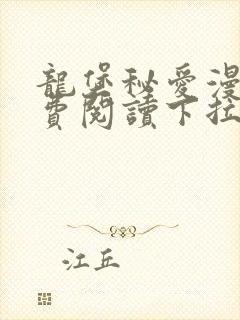 龍堡秘愛漫
費閱讀下拉
江丘